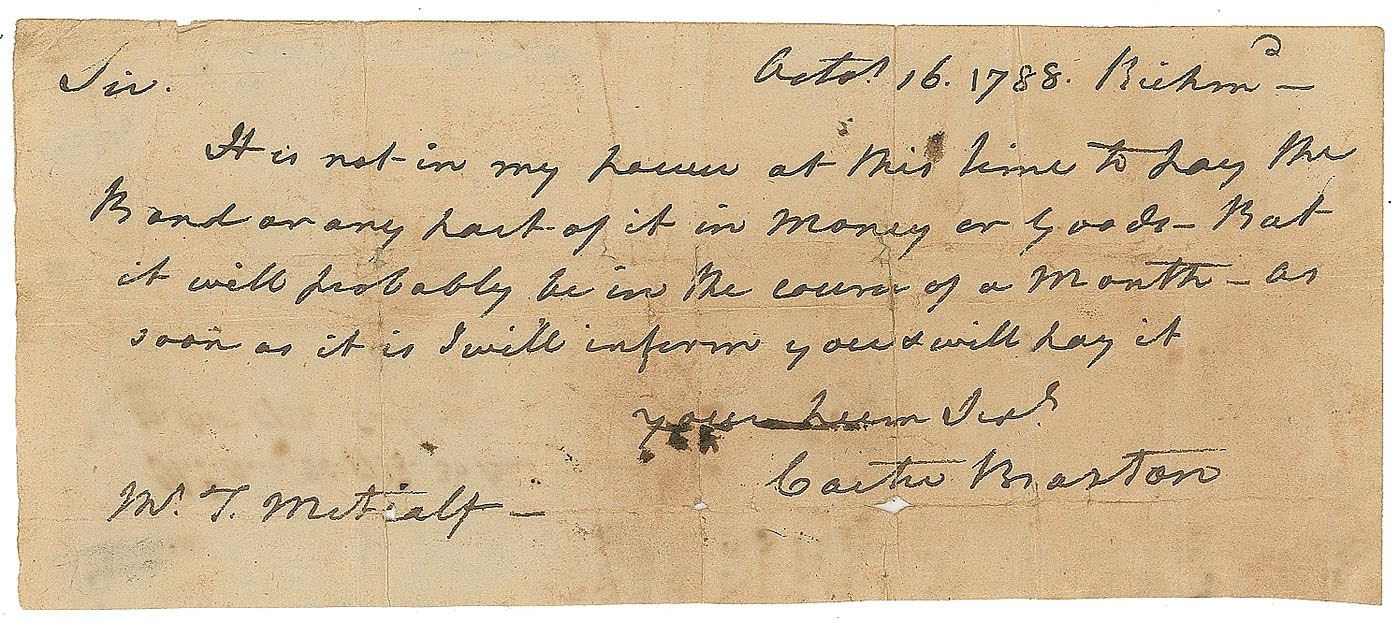 Sir. Octob.r 16. 1788. Richm.d —
It is not in my power at this time to pay the
Bond or any part of it in Money or Goods — But
it will probably be in the course of a Month — As
soon as it is I will inform you & will pay it
your hum Serv.t
Carter Braxton
Mr. T. Metcalf —